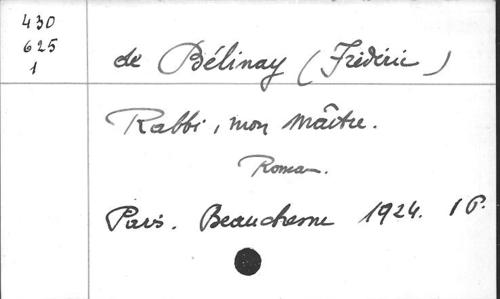 430
625
1
de Bélinay (Frédéric)
Rabbi, mon Maître.
Roman.
Paris. Beauchesne 1924. 1 P.